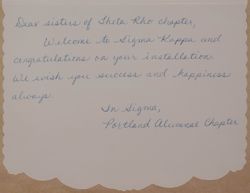 Dear sisters of Theta Rho chapter,
Welcome to Sigma Kappa and
congratulations on your installation.
We wish you success and happiness
always.
In Sigma,
Portland Alumnae Chapter